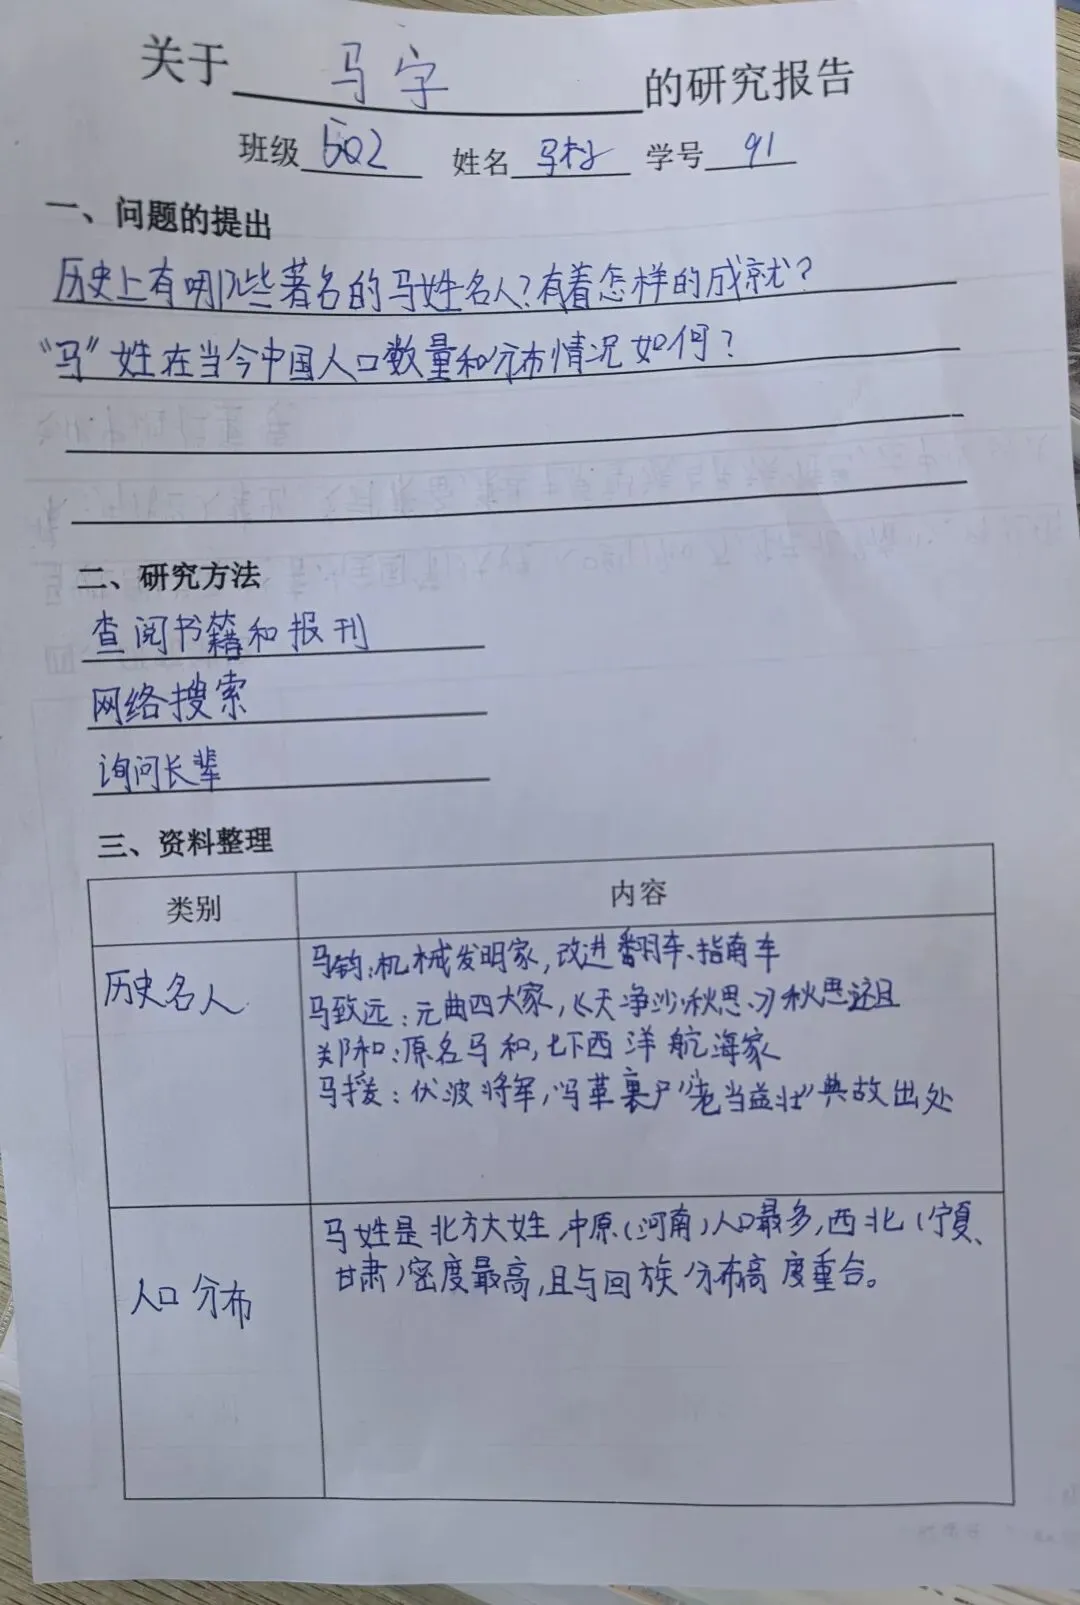 关于 马字 的研究报告
班级 502 姓名 马 学号 91
一、问题的提出
历史上有哪些著名的马姓名人?有着怎样的成就?
“马”姓在当今中国人口数量和分布情况如何?
二、研究方法
查阅书籍和报刊
网络搜索
询问长辈
三、资料整理
类别 内容
历史名人
马钧:机械发明家,改进翻车、指南车
马致远:元曲四大家,《天净沙·秋思》秋思
郑和:原名马和,七下西洋航海家
马援:伏波将军,“马革裹尸”“老当益壮”典故出处
人口分布
马姓是北方大姓,中原(河南)人口最多,西北(宁夏、
甘肃)密度最高,且与回族分布高度重合。